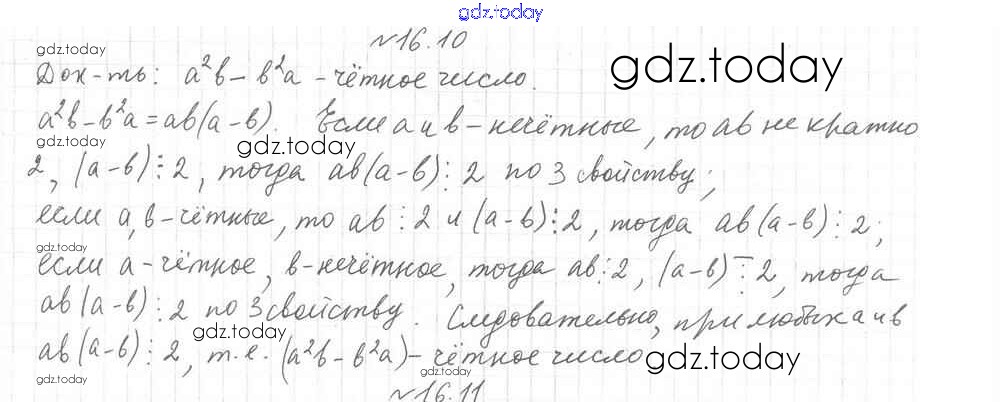 gdz.today
№16.10
gdz.today
Док-ть: a²b - b²a - чётное число.
gdz.today
a²b - b²a = ab(a - b). Если a и b - нечётные, то ab не кратно
gdz.today
gdz.today
2, (a - b)⋮2, тогда ab(a - b)⋮2 по 3 свойству;
если a, b - чётные, то ab⋮2 и (a - b)⋮2, тогда ab(a - b)⋮2;
gdz.today
если a - чётное, b - нечётное, тогда ab⋮2, (a - b)⋮̅2, тогда
ab(a - b)⋮2 по 3 свойству. Следовательно, при любых a и b
gdz.today
ab(a - b)⋮2, т.е. (a²b - b²a) - чётное число
gdz.today
gdz.today
gdz.today
№16.11